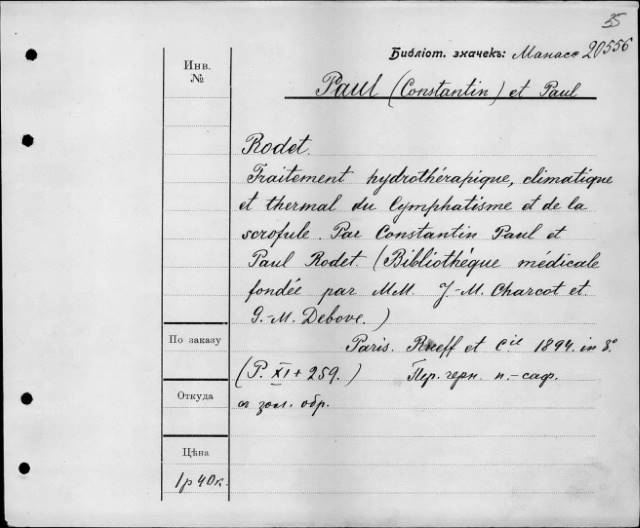 35
Библіот. значекъ: Манасс 20556
Инв.
№
Paul (Constantin) et Paul
Rodet.
Traitement hydrothérapique, climatique
et thermal du lymphatisme et de la
scrofule. Par Constantin Paul et
Paul Rodet. (Bibliothéque médicale
fondée par MM. J.-M. Charcot et
G.-M. Debove.)
По заказу
Paris. Rueff et Cie 1894. in 8°.
(P. XI + 259.) Пер. черн. п.-саф.
Откуда
с зол. обр.
Цѣна
1 р 40 к.